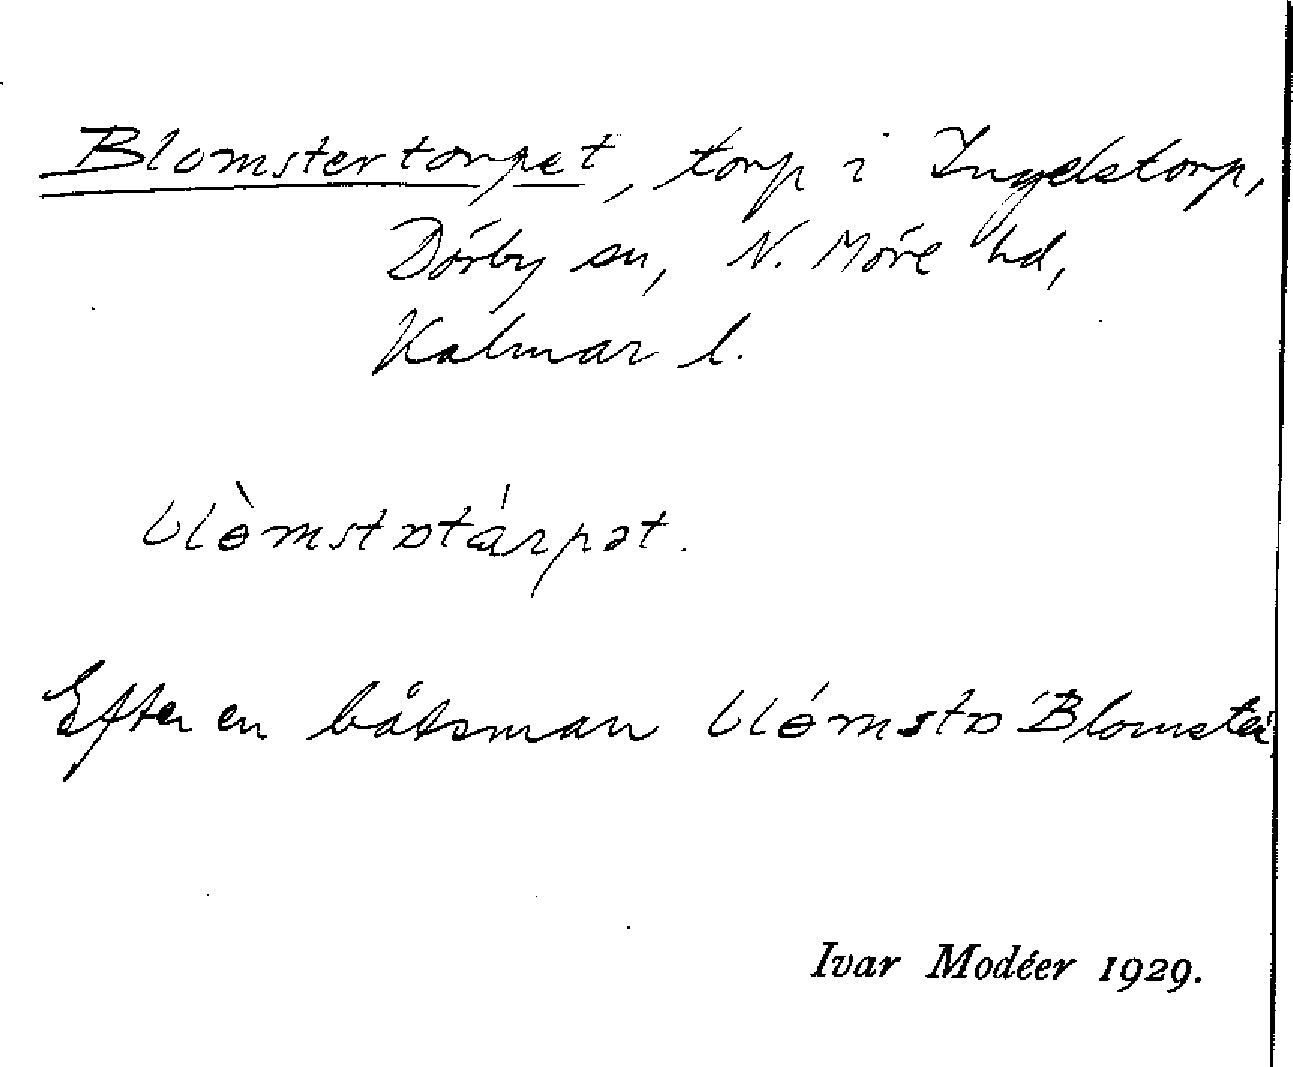 Blomstertorpet, torp i Ingelstorp,
Dörby sn, N. Möre hd,
Kalmar l.
Efter en båtsman Blomster
Ivar Modéer 1929.